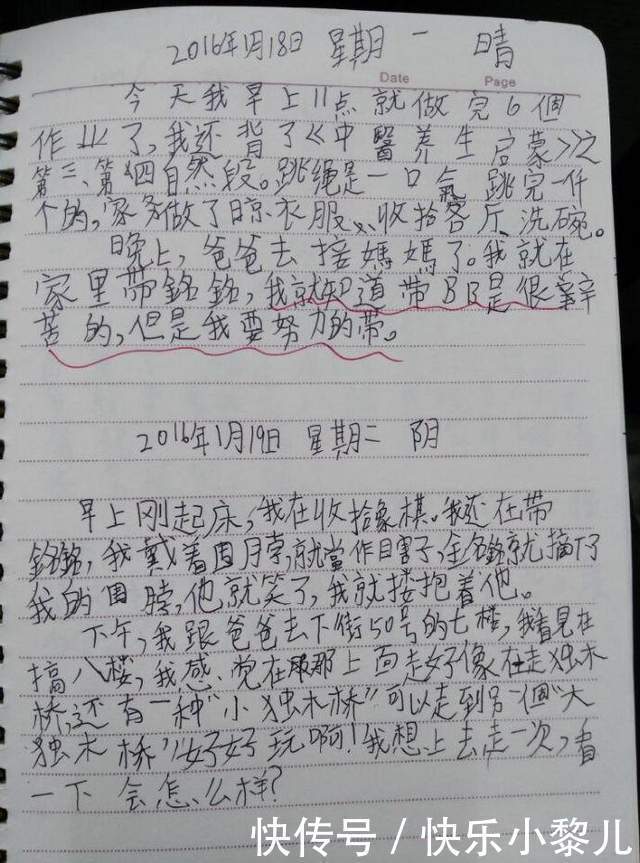 2016年1月18日 星期一 晴
Date Page
今天我早上11点就做完6個
作业了,我还背了《中醫养生启蒙》之
第三、第四自然段。跳绳是一口氣跳完一仟
个的,家务做了晾衣服、收拾客厅、洗碗。
晚上,爸爸去接媽媽了。我就在
家里带銘銘,我就知道带BB是很辛
苦的,但是我要努力的带。
2016年1月19日 星期二 阴
早上刚起床,我在收拾象棋。我还在带
銘銘,我戴着围脖,就當作目害子,銘銘就摘下了
我的围脖,他就笑了,我就搂抱着他。
下午,我跟爸爸去下街50号的七楼,我看見在
搞八楼,我感觉在那上面走好像在走独木
桥,还有一种"小独木桥"可以走到另一個"大
独木桥"!好好玩啊!我想上去走一次,看
一下会怎么样?
快传号 / 快乐小黎儿